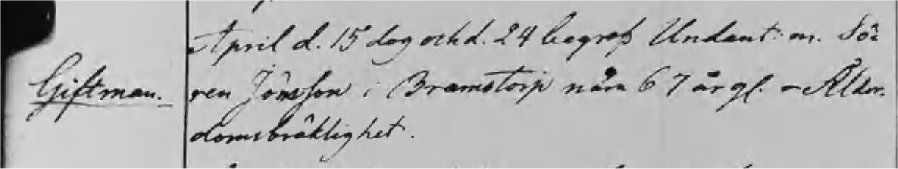 April d. 15 dog och d. 24 begrofs Undant. m. Sö-
Giftman. ren Jönsson i Bramstorp nära 67 år gl. - Ålder-
domsbräklighet.